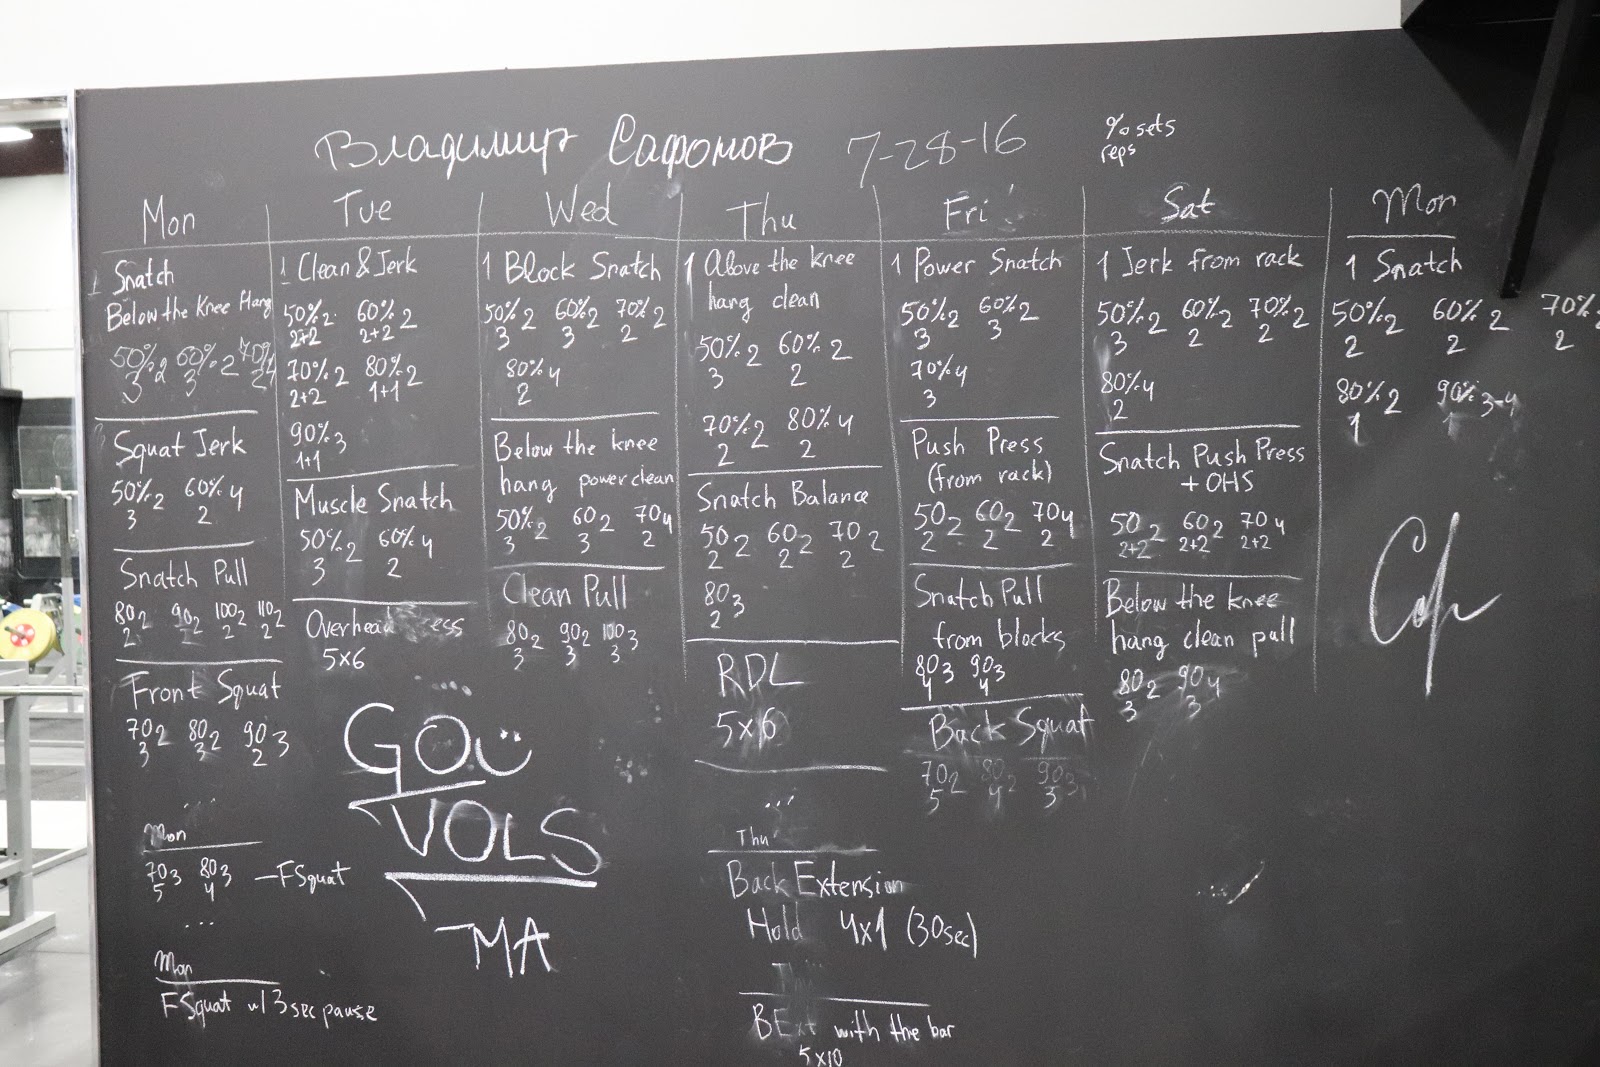 Владимир Сафонов 7-28-16
% sets
reps
Mon
1 Snatch
Below the Knee Hang
50% 2 60% 2 70%
3 3
Squat Jerk
50% 2 60% 4
3 2
Snatch Pull
80 2 90 2 100 2 110 2
2 2 2 2
Front Squat
70 2 80 2 90 3
3 3 2
...
Mon
70 3 80 3 - FSquat
5 4
...
Mon
FSquat w/ 3 sec pause
Tue
1 Clean & Jerk
50% 2 60% 2
2+2 2+2
70% 2 80% 2
2+2 1+1
90% 3
1+1
Muscle Snatch
50% 2 60% 4
3 2
Overhead Press
5x6
GO
VOLS
-MA
Wed
1 Block Snatch
50% 2 60% 2 70% 2
3 3 2
80% 4
2
Below the knee
hang power clean
50% 2 60 2 70 4
3 3 2
Clean Pull
80 2 90 2 100 3
3 3 3
Thu
1 Above the knee
hang clean
50% 2 60% 2
3 2
70% 2 80% 4
2 2
Snatch Balance
50 2 60 2 70 2
2 2 2
80 3
2
RDL
5x6
...
Thu
Back Extension
Hold 4x1 (30sec)
BExt with the bar
5x10
Fri
1 Power Snatch
50% 2 60% 2
3 3
70% 4
3
Push Press
(from rack)
50 2 60 2 70 4
2 2 2
Snatch Pull
from blocks
80 3 90 3
4 4
Back Squat
70 2 80 2 90 3
5 4 3
Sat
1 Jerk from rack
50% 2 60% 2 70% 2
3 2 2
80% 4
2
Snatch Push Press
+ OHS
50 2 60 2 70 4
2+2 2+2 2+2
Below the knee
hang clean pull
80 2 90 4
3 3
Mon
1 Snatch
50% 2 60% 2 70% 2
2 2 2
80% 2 90% 3-4
1 1